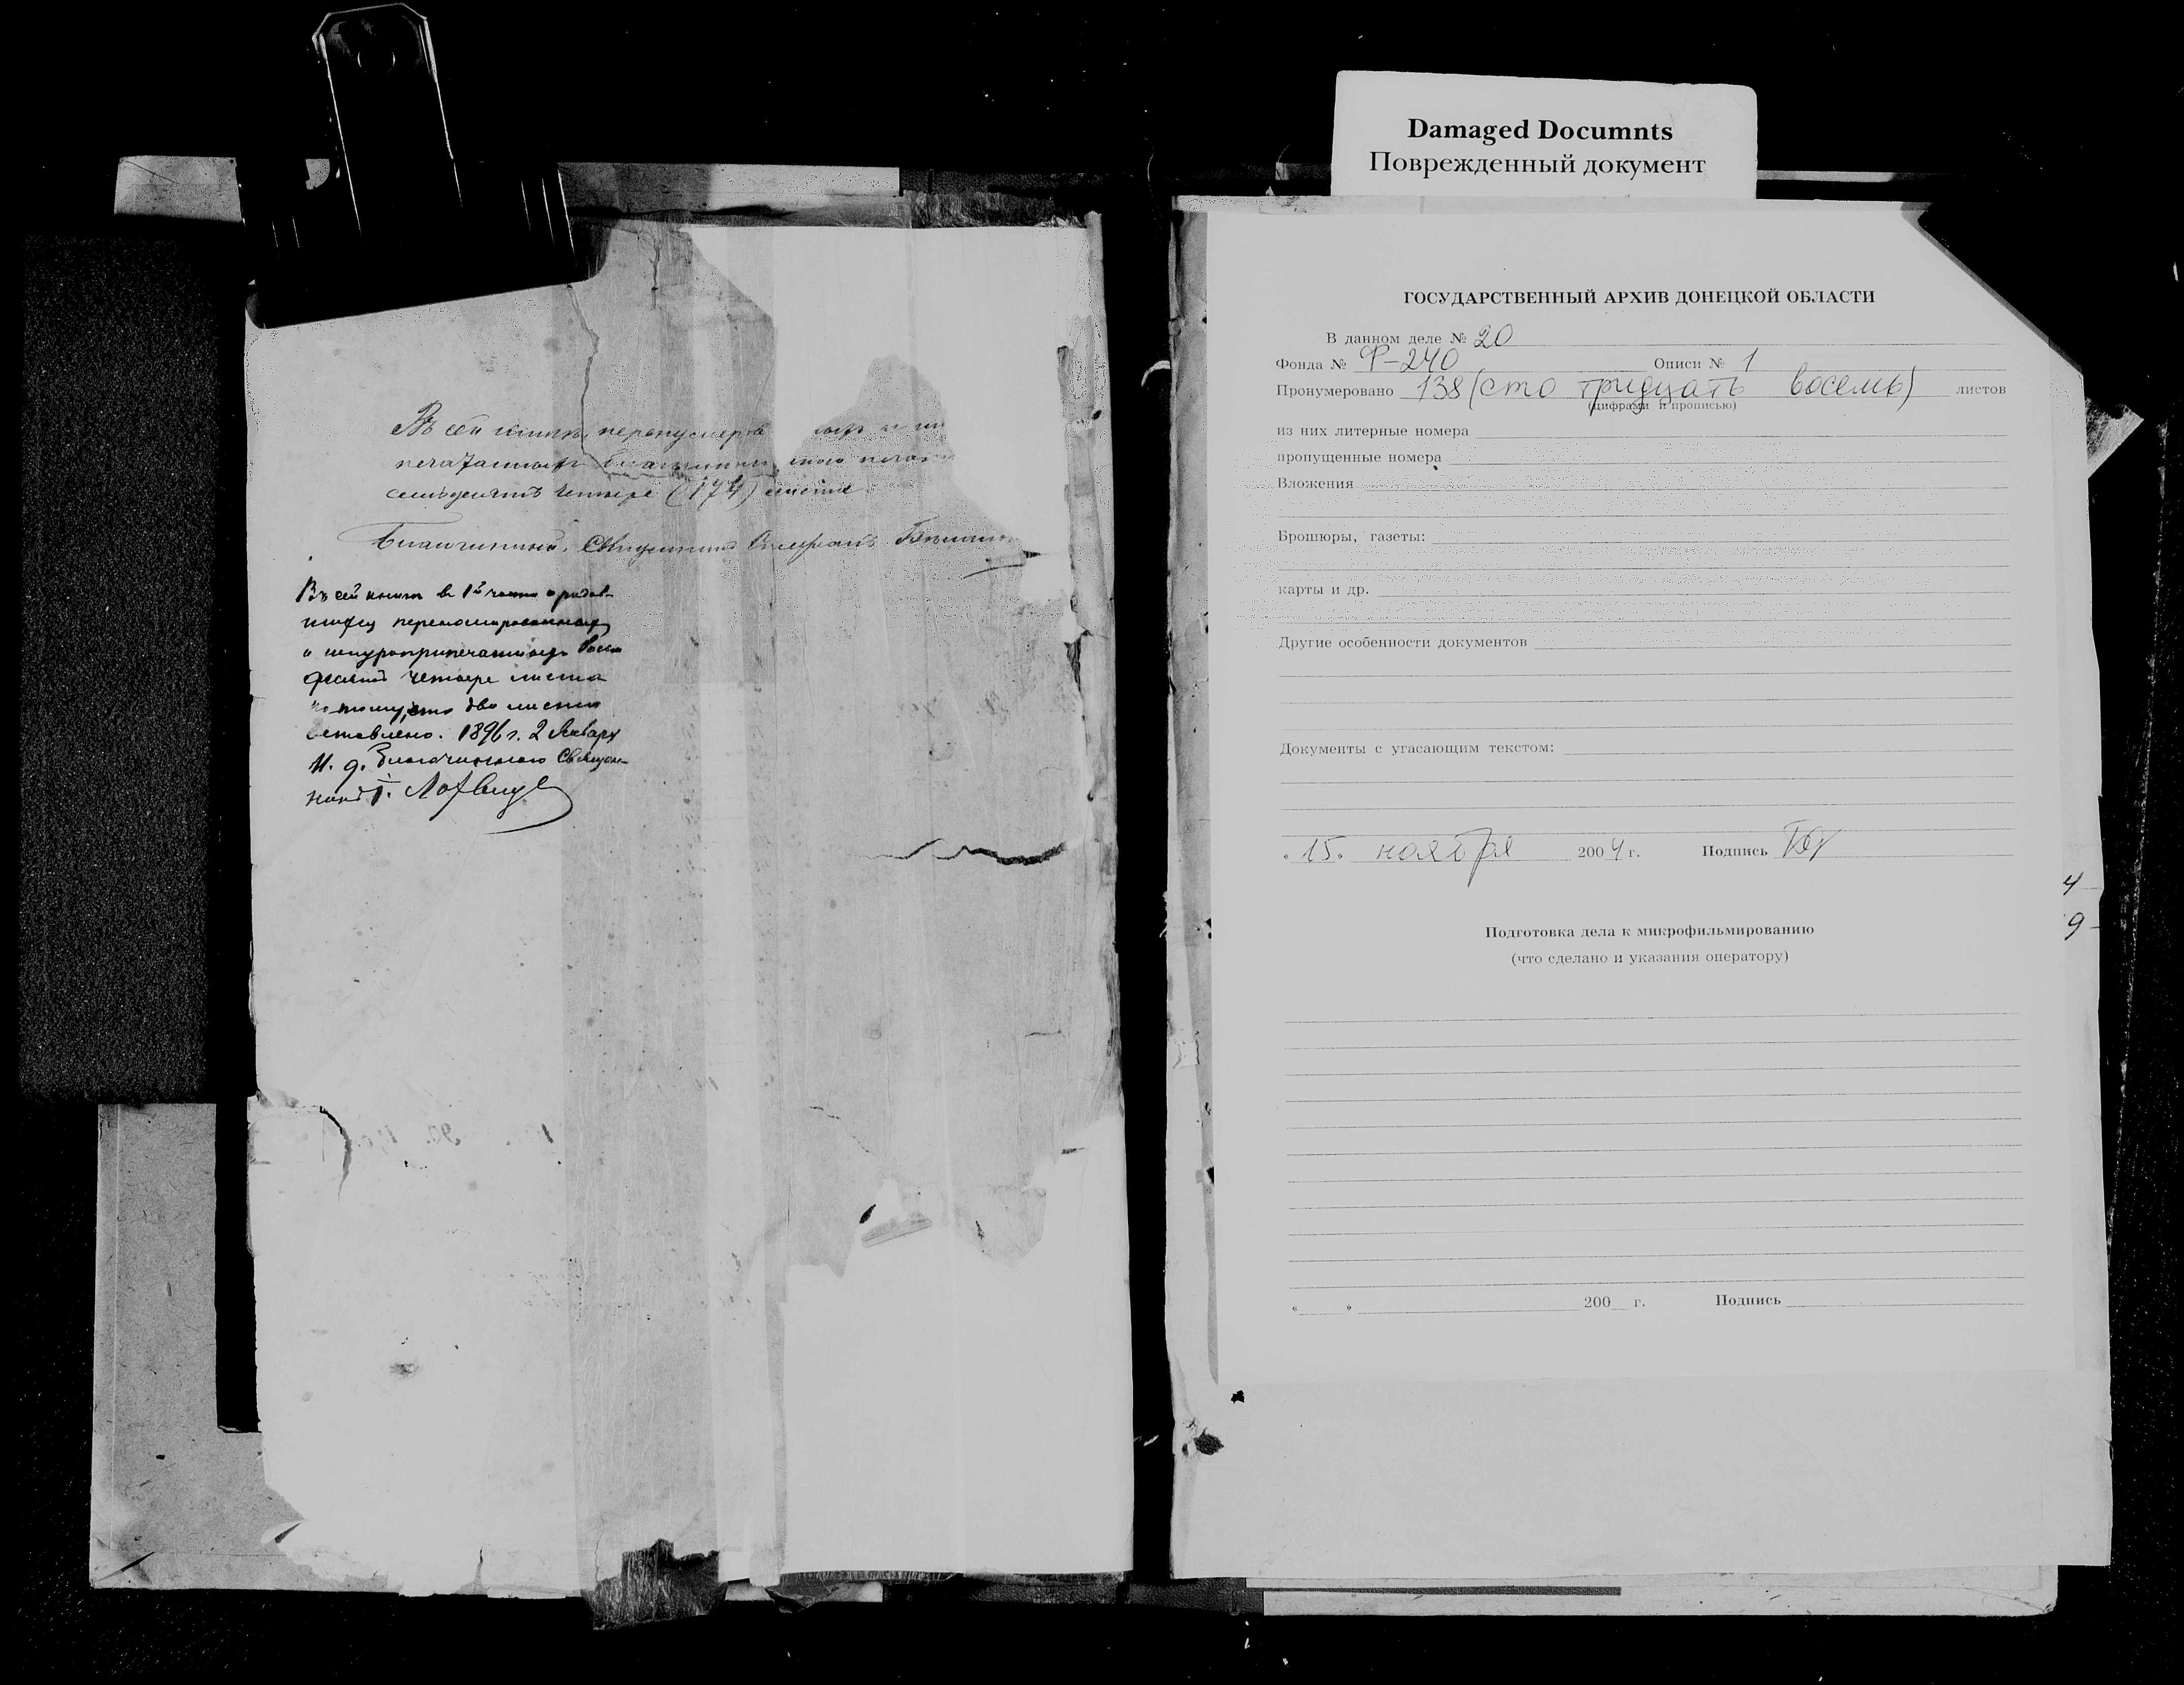 Въ сей книгѣ перенумеро
печатанныхъ
семьдесятъ четыре (174) листа.
Благочинный, Священникъ
Въ сей книгѣ въ 1й части о родив-
шихся перенумерованныхъ
и шнуроприпечатанныхъ восемь
десятъ четыре листа
два листа
оставлено. 1896 г. 2 Января
И. д. Благочиннаго Священ-
никъ І.
Damaged Documnts
Поврежденный документ
ГОСУДАРСТВЕННЫЙ АРХИВ ДОНЕЦКОЙ ОБЛАСТИ
В данном деле № 20
Фонда № Ф-240 Описи № 1
Пронумеровано 138 (сто тридцать восемь) листов
(цифрами и прописью)
из них литерные номера
пропущенные номера
Вложения
Брошюры, газеты:
карты и др.
Другие особенности документов
Документы с угасающим текстом:
« 15 » ноября 2004 г. Подпись
4
9
Подготовка дела к микрофильмированию
(что сделано и указания оператору)
« » 200 г. Подпись